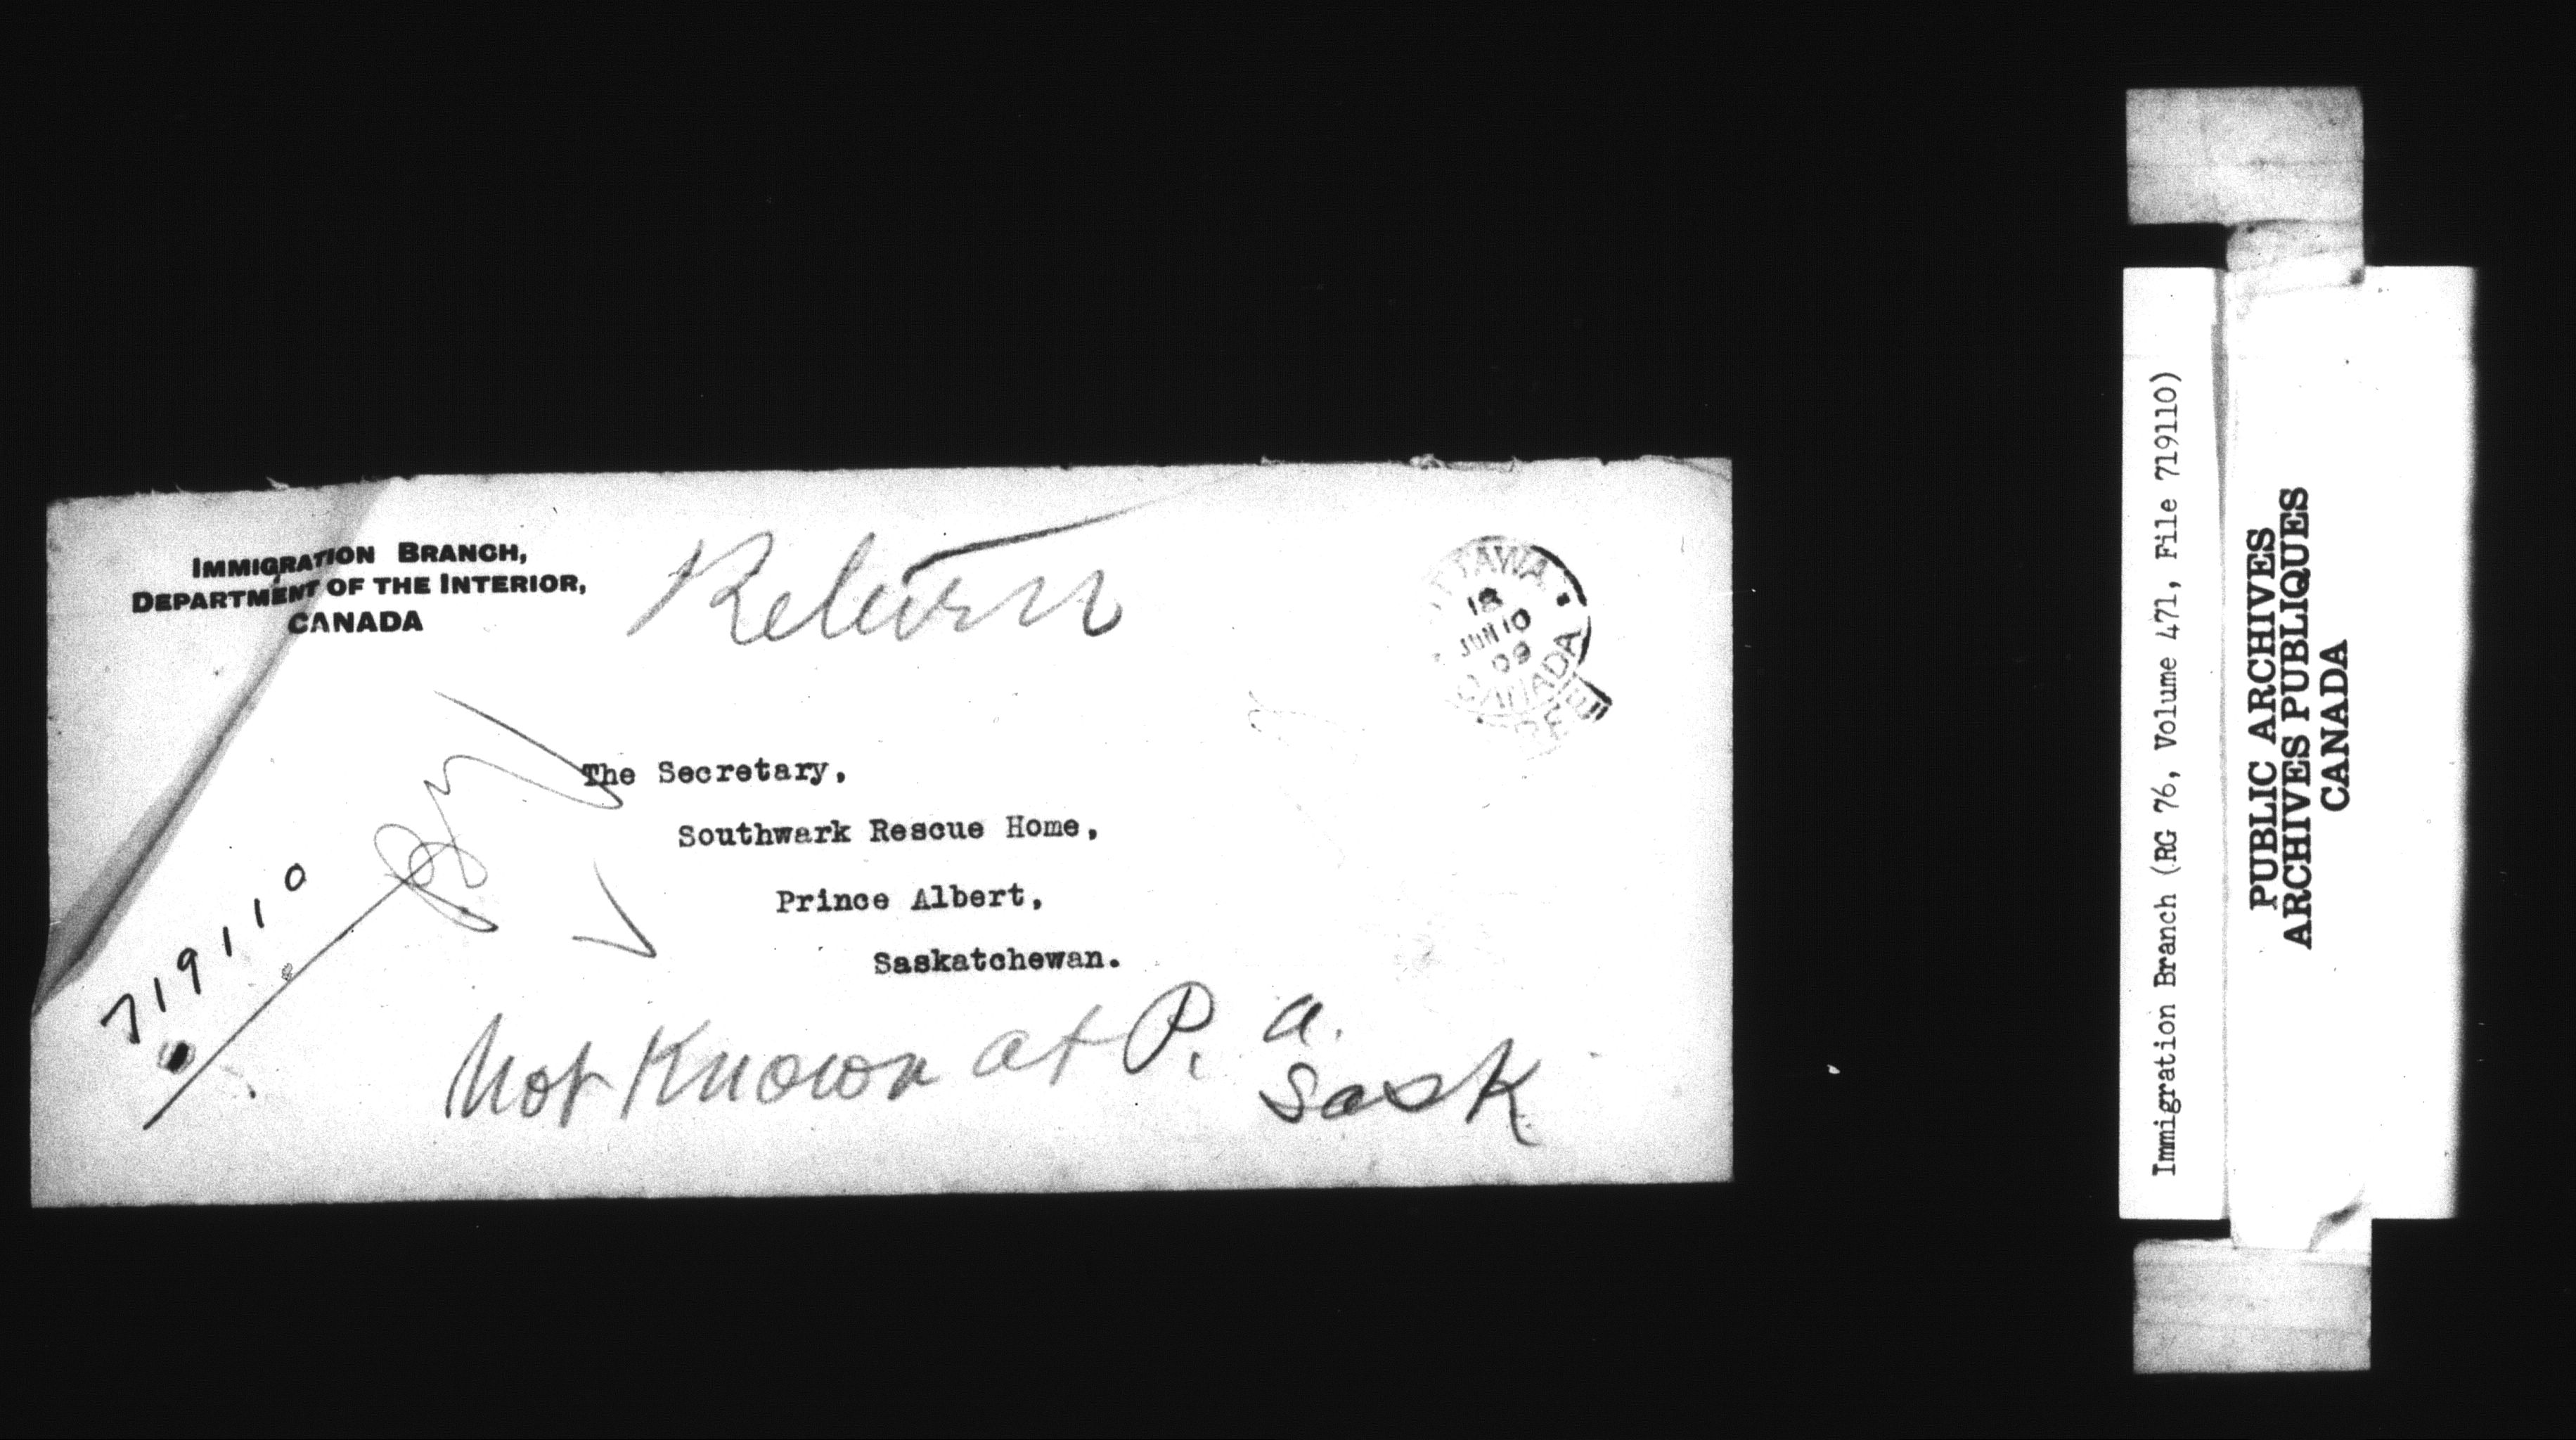 IMMIGRATION BRANCH,
DEPARTMENT OF THE INTERIOR,
CANADA
Return
OTTAWA
18
JUN 10
09
CANADA
FREE
The Secretary,
Southwark Rescue Home,
Prince Albert,
Saskatchewan.
719110
Not Known at P. a.
Sask
Immigration Branch (RG 76, Volume 471, File 719110)
PUBLIC ARCHIVES
ARCHIVES PUBLIQUES
CANADA